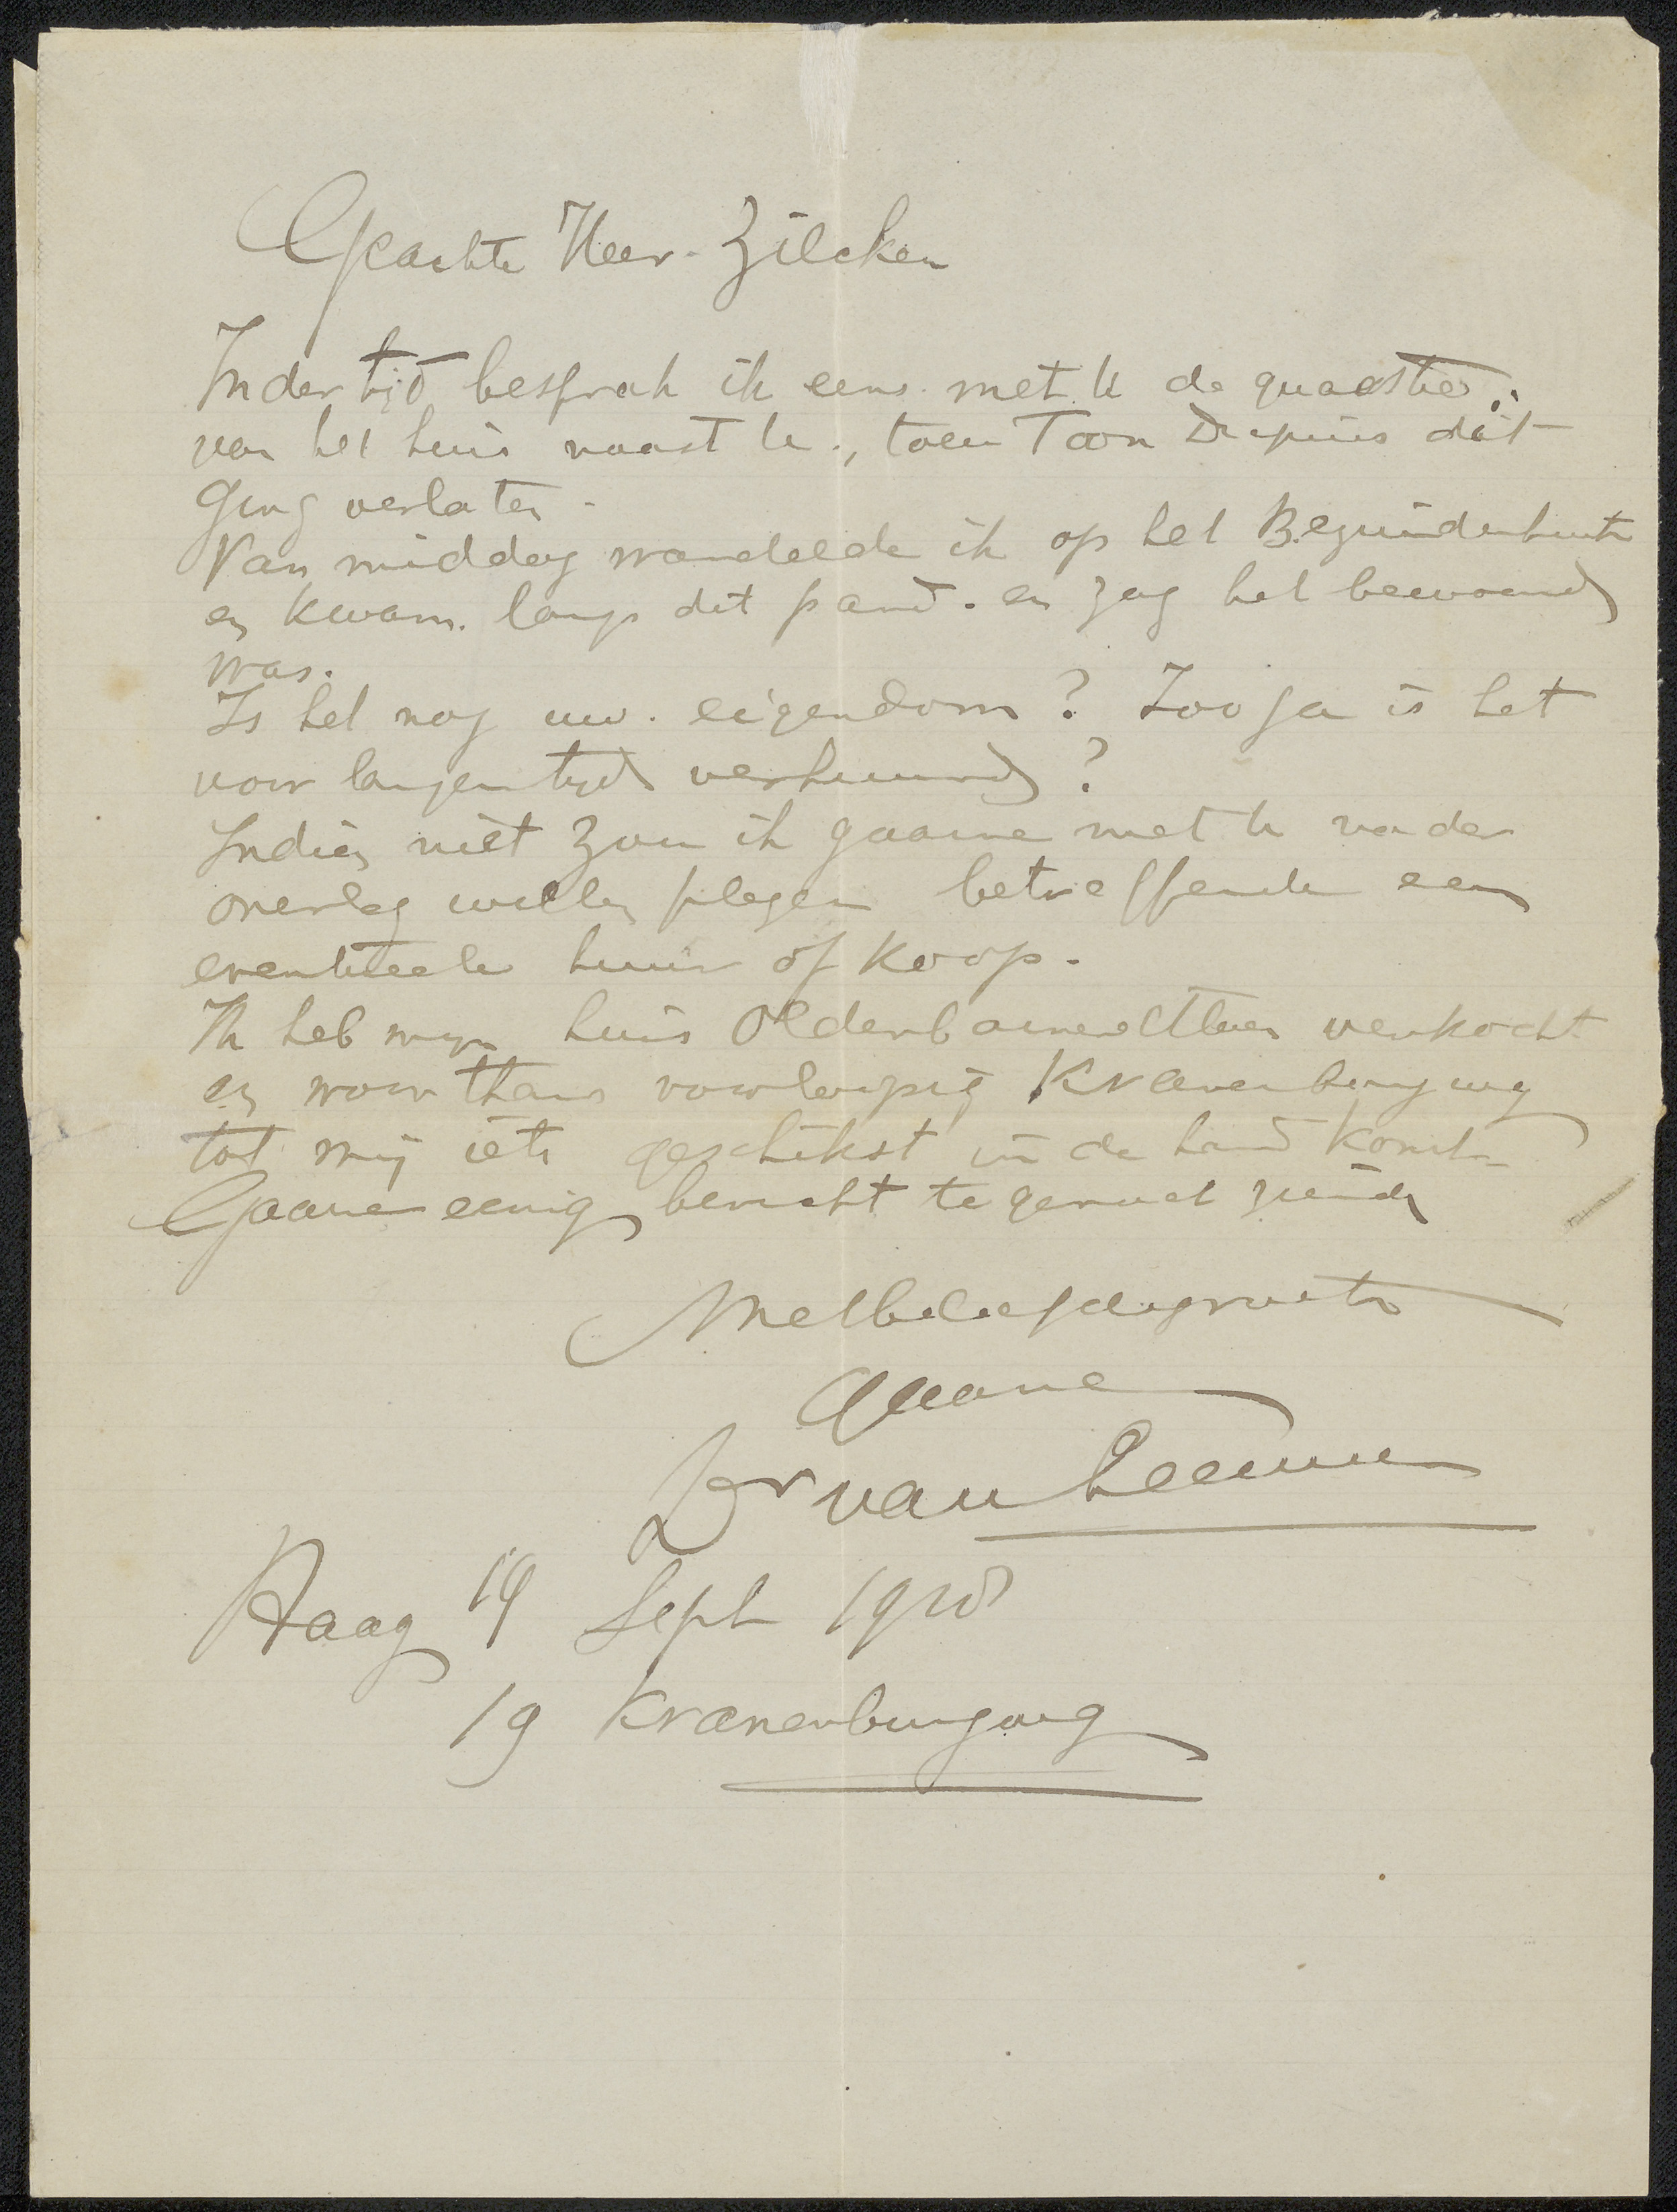 Geachte Heer Zilcken
Indertijd besprak ik eens met U de quaestie
van het huis naast U, toen Toon Dupuis dit
ging verlaten.
Van middag wandelde ik op het Bezuidenhout
en kwam langs dit pand. en zag het bewoond
was.
Is het nog uw eigendom? Zoo ja is het
voor langen tijd verhuurd?
Indien niet zou ik gaarne met U nader
overleg willen plegen betreffende een
eventueele huur of koop.
Ik heb mijn huis Oldenbarneveltlaan verkocht
en woon thans voorloopig Kranenburgweg
tot mij iets geschikst in de hand komt.
Gaarne eenig bericht te gemoet ziende
Met beleefde groeten
Dr van Leeuwen
Haag 19 Sept
19 Kranenburgweg